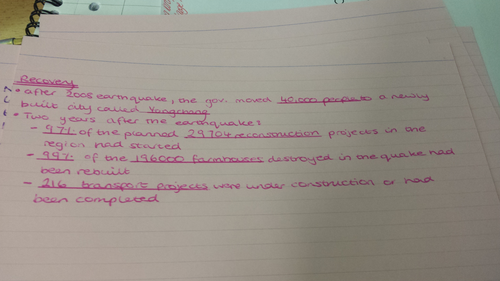 Recovery
• After 2005 earthquake, the gov. moved 40,000 people to a newly
built city called Yongchang
• Two years after the earthquake:
- 97% of the planned 29704 reconstruction projects in the
region had started
- 99% of the 196000 farmhouses destroyed in the quake had
been rebuilt
- 216 transport projects were under construction or had
been completed